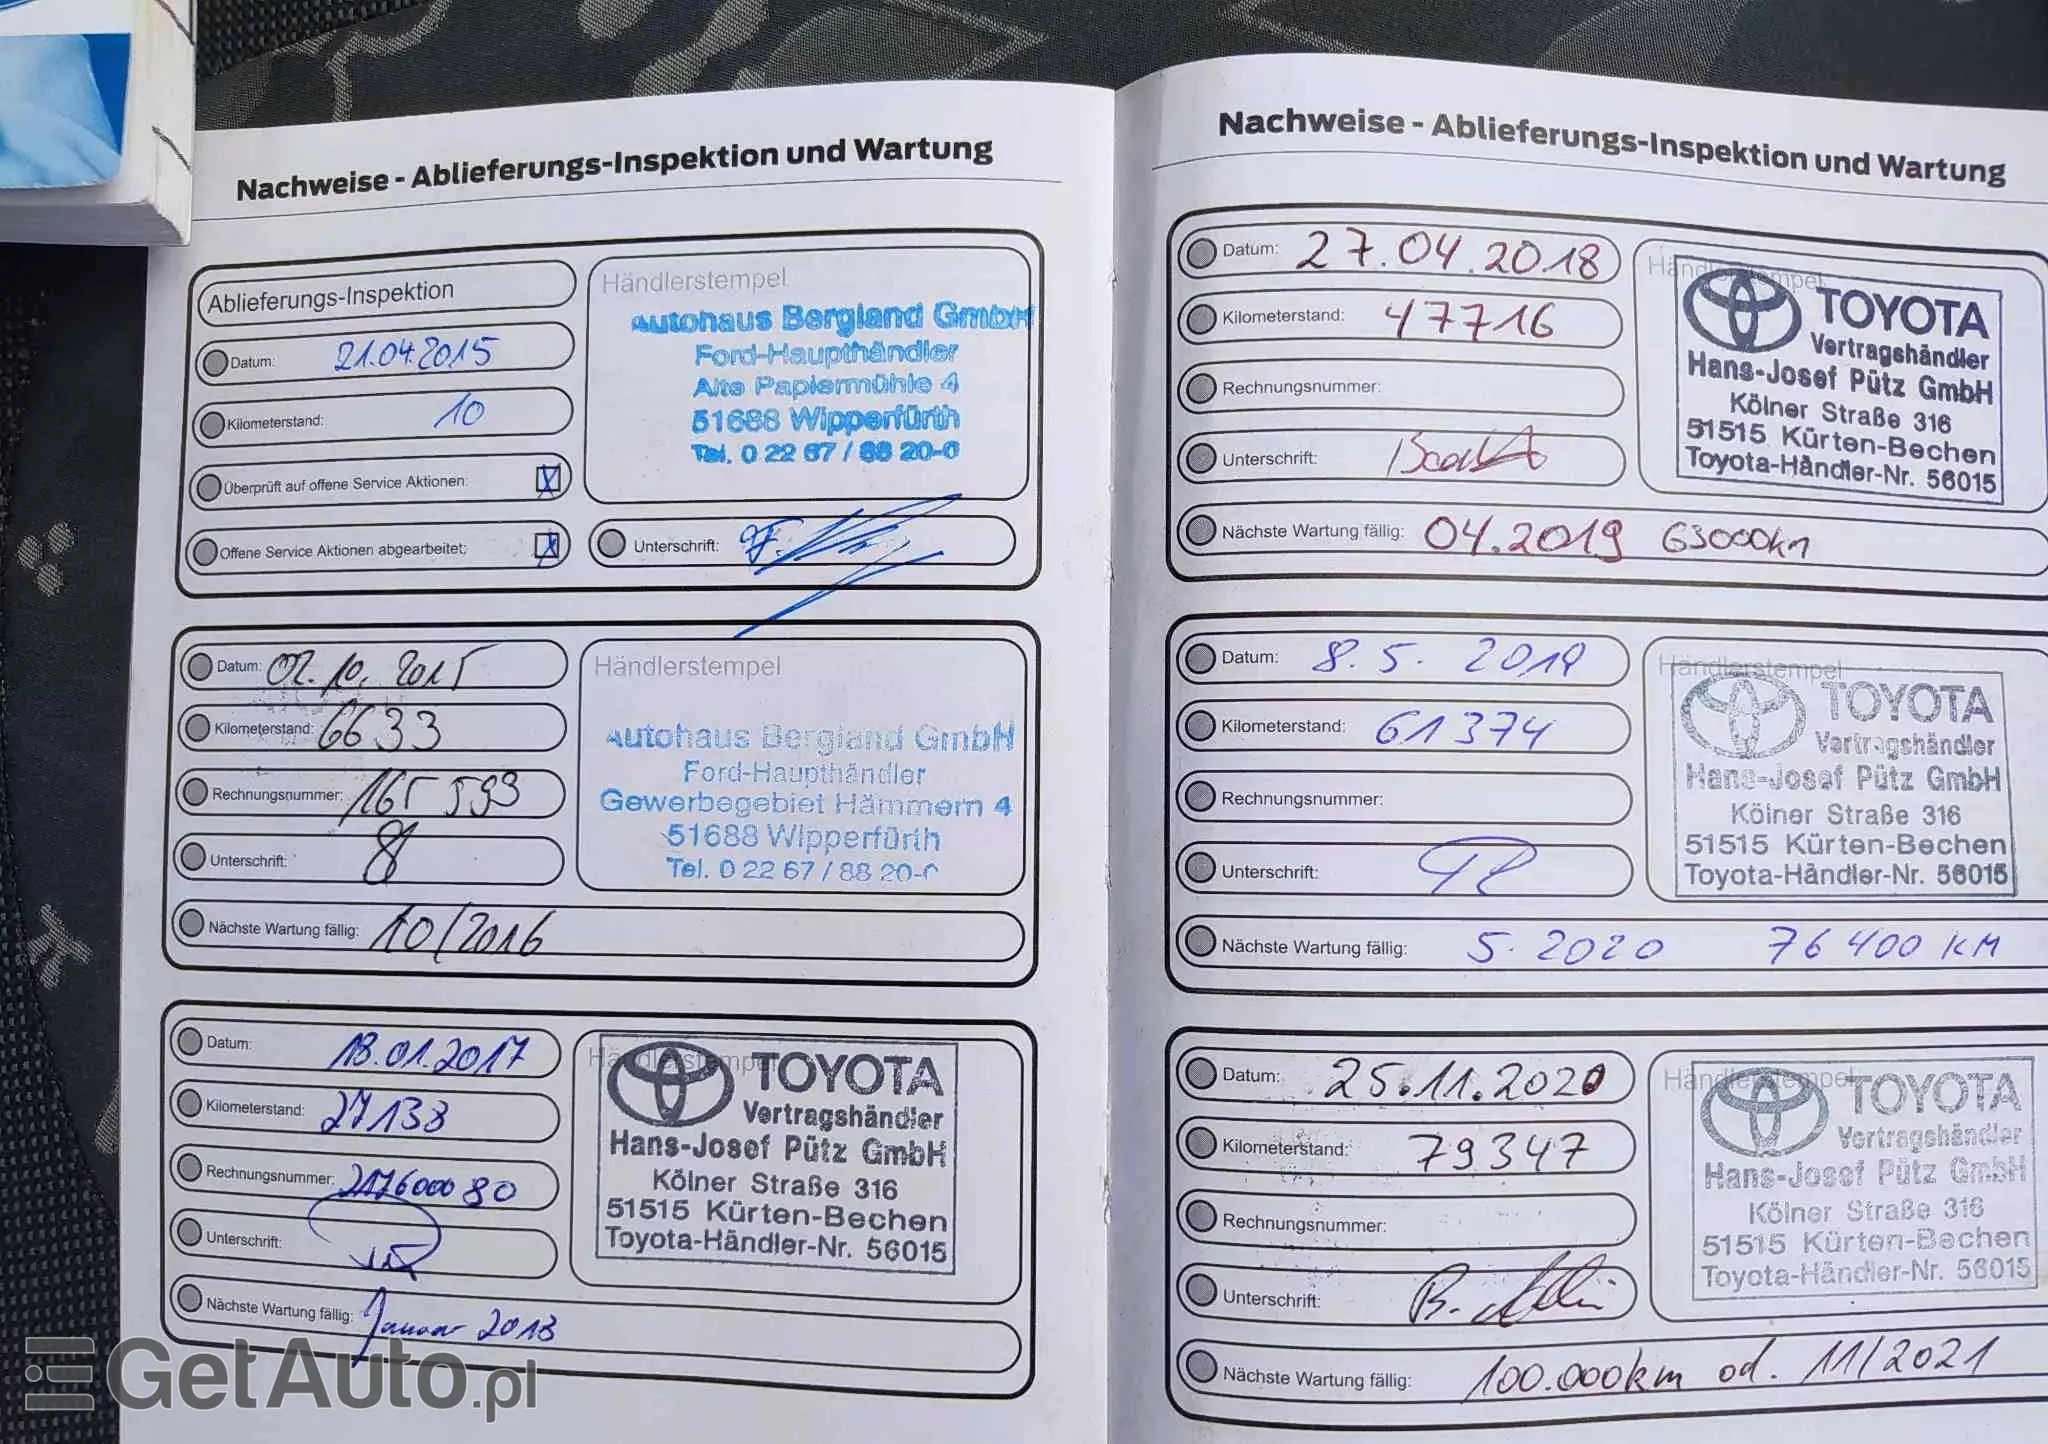 Nachweise - Ablieferungs-Inspektion und Wartung
Ablieferungs-Inspektion
Datum: 21.04.2015
Kilometerstand: 10
Überprüft auf offene Service Aktionen: X
Offene Service Aktionen abgearbeitet: X
Händlerstempel
Autohaus Bergland GmbH
Ford-Haupthändler
Alte Papiermühle 4
51688 Wipperfürth
Tel. 0 22 67 / 88 20-0
Unterschrift:
Datum: 02.10.2015
Kilometerstand: 6633
Rechnungsnummer: 165593
Unterschrift:
Nächste Wartung fällig: 10/2016
Händlerstempel
Autohaus Bergland GmbH
Ford-Haupthändler
Gewerbegebiet Hämmern 4
51688 Wipperfürth
Tel. 0 22 67 / 88 20-0
Datum: 18.01.2017
Kilometerstand: 27138
Rechnungsnummer: 217600080
Unterschrift:
Nächste Wartung fällig: Januar 2018
Händlerstempel
TOYOTA
Vertragshändler
Hans-Josef Pütz GmbH
Kölner Straße 316
51515 Kürten-Bechen
Toyota-Händler-Nr. 56015
Nachweise - Ablieferungs-Inspektion und Wartung
Datum: 27.04.2018
Kilometerstand: 47716
Rechnungsnummer:
Unterschrift:
Nächste Wartung fällig: 04.2019 63000km
Händlerstempel
TOYOTA
Vertragshändler
Hans-Josef Pütz GmbH
Kölner Straße 316
51515 Kürten-Bechen
Toyota-Händler-Nr. 56015
Datum: 8.5. 2019
Kilometerstand: 61374
Rechnungsnummer:
Unterschrift:
Nächste Wartung fällig: 5.2020 76400 KM
Händlerstempel
TOYOTA
Vertragshändler
Hans-Josef Pütz GmbH
Kölner Straße 316
51515 Kürten-Bechen
Toyota-Händler-Nr. 56015
Datum: 25.11.2020
Kilometerstand: 79347
Rechnungsnummer:
Unterschrift:
Nächste Wartung fällig: 100.000km od. 11/2021
Händlerstempel
TOYOTA
Vertragshändler
Hans-Josef Pütz GmbH
Kölner Straße 316
51515 Kürten-Bechen
Toyota-Händler-Nr. 56015
GetAuto.pl